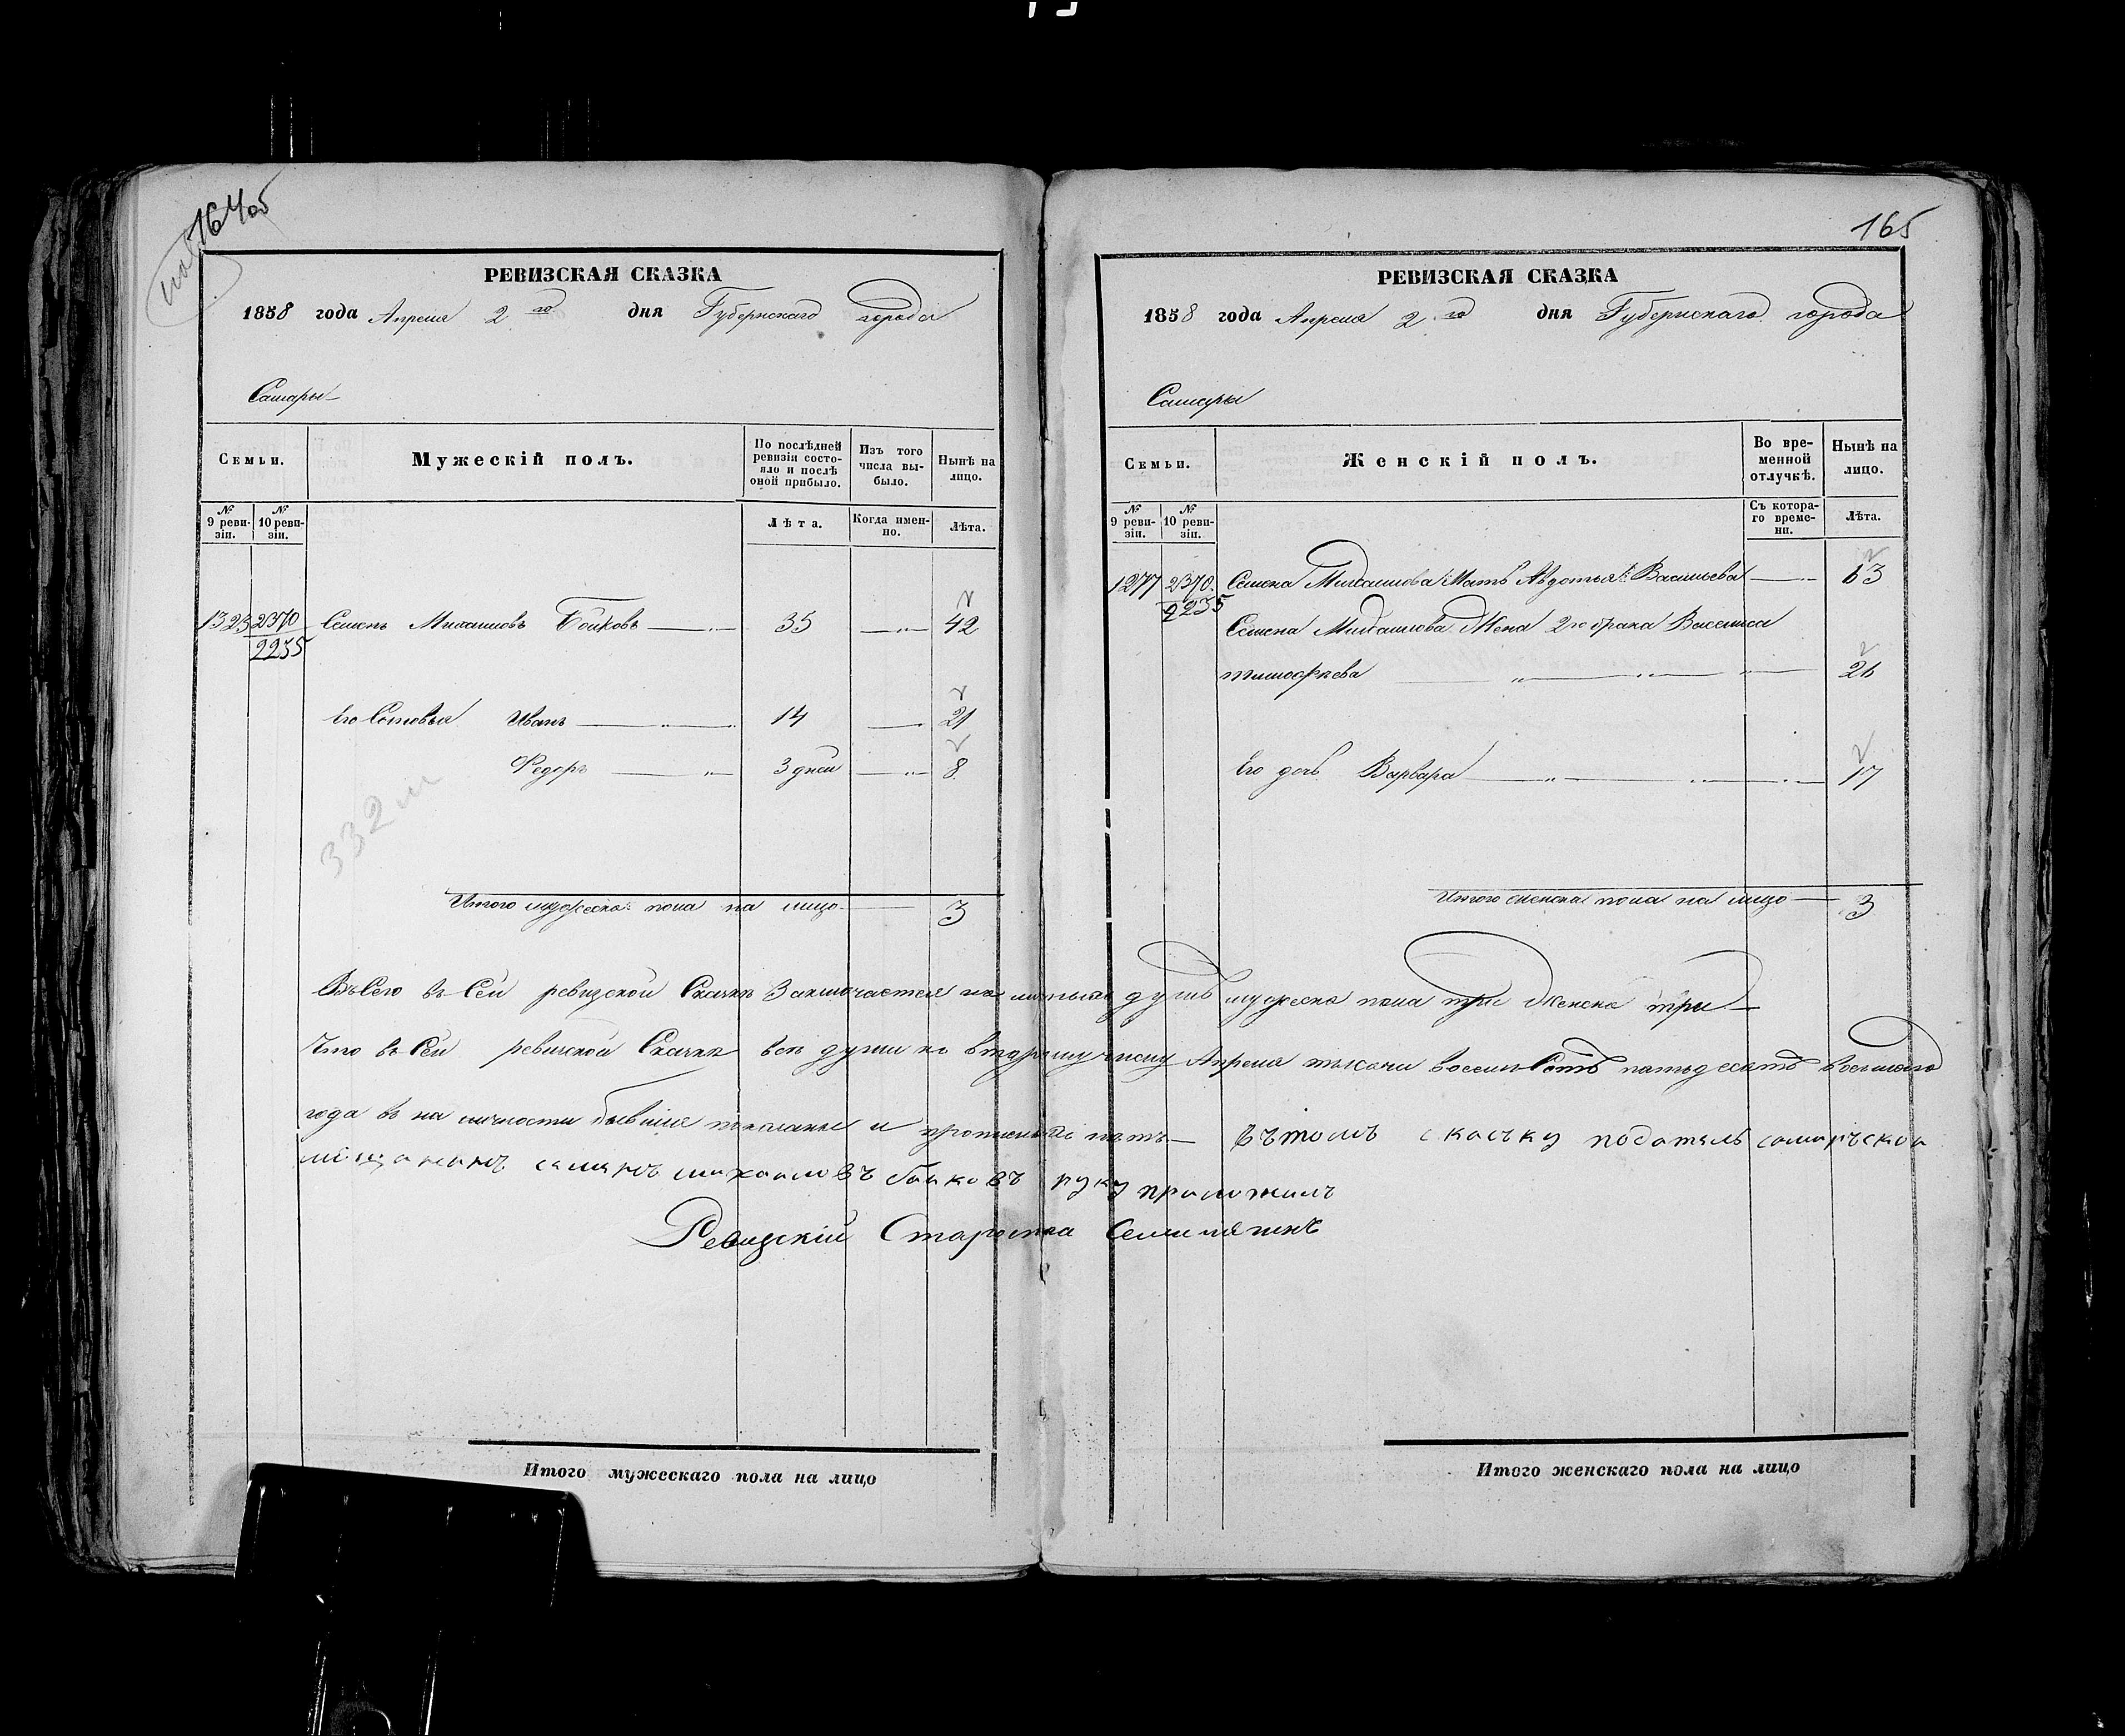 164об
РЕВИЗСКАЯ СКАЗКА
1858 года Апреля 2го дня Губернскаго города
Самары
Семьи.
Мужескій полъ.
По послѣдней ревизіи состояло и послѣ оной прибыло.
Изъ того числа выбыло.
Нынѣ на лицо.
№ 9 ревизіи.
№ 10 ревизіи.
Лѣта.
Когда именно.
Лѣта.
1323 2370 Семенъ Михаиловъ Бойковъ 35 42
2255
Его Сыновья Иванъ 14 21
Федоръ 3 дней 8
332
Итого мужеска пола на лицо 3
165
РЕВИЗСКАЯ СКАЗКА
1858 года Апреля 2го дня Губернскаго города
Самары
Семьи.
Женскій полъ.
Во временной отлучкѣ.
Нынѣ на лицо.
№ 9 ревизіи.
№ 10 ревизіи.
Съ котораго времени.
Лѣта.
1277 2370 Семена Михаилова Мать Авдотья Васильева 63
2235
Семена Михаилова Жена 2го брака Василиса
тимофкева 26
Его дочь Варвара 17
Итого женска пола на лицо 3
Въ Сей ревизской Скаски Заключается душъ мужеска пола три Женска три
Что въ Сей ревиской Скаски все души ко второму числу Апреля тысячи восемь Сотъ пятьдесятъ восьмаго
года въ на личности бывшие показаны и прописныхъ нѣтъ вътомъ скаську податель самарьской
мещанинъ семенъ михаиловъ байковъ руку приложилъ
Ревизскій Староста
Итого мужескаго пола на лицо
Итого женскаго пола на лицо